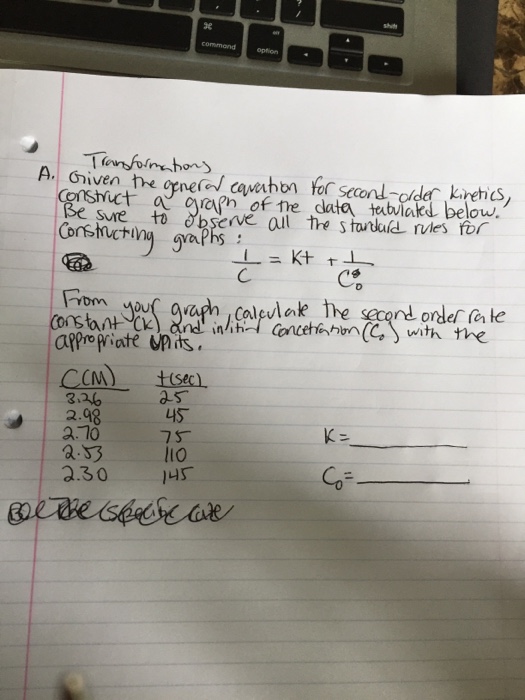 shift
⌘
command
option
Transformations
A. Given the general equation for second-order kinetics,
construct a graph of the data tabulated below.
Be sure to observe all the standard rules for
Constructing graphs:
1/C = Kt + 1/C₀
From your graph, calculate the second order rate
constant (K) and initial concetration (C₀) with the
appropriate units.
C(M) t(sec)
3.26 25
2.98 45
2.70 75
2.53 110
2.30 145
K=
C₀=